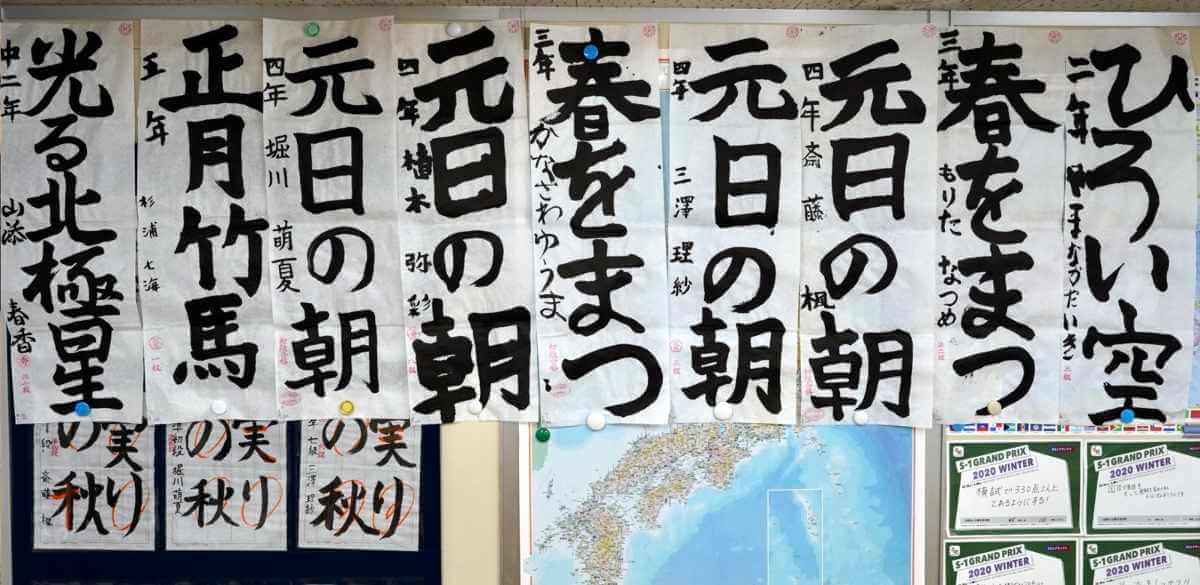 ひろい空
二年
春をまつ
三年 もりた なつめ
元日の朝
四年 斎藤 楓
元日の朝
四年 三澤 理紗
春をまつ
三年 かなざわゆうま
元日の朝
四年 植木 弥彩
元日の朝
四年 堀川 萌夏
正月竹馬
五年 杉浦 七海
光る北極星
中二年 山添 春香
の実
秋り
の実
秋り
堀川萌夏
の実
秋り
七級 三澤理紗
S-1 GRAND PRIX
2020 WINTER
模試で330点以上
とれるようにする!
S-1 GRAND PRIX
2020 WINTER
S-1 GRAND PRIX
2020 WINTER
S-1 GRAND PRIX
2020 WINTER